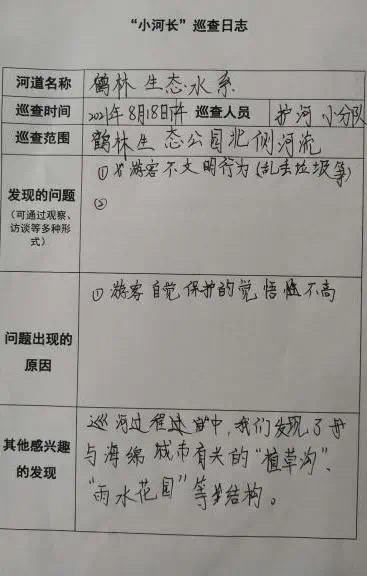 “小河长”巡查日志
河道名称 鹤林生态水系
巡查时间 2021年8月18日 巡查人员 护河小分队
巡查范围 鹤林生态公园北侧河流
发现的问题
(可通过观察、
访谈等多种形
式)
① 游客不文明行为(乱丢垃圾等)
②
问题出现的
原因
① 游客自觉保护的觉悟性不高
其他感兴趣
的发现
巡河过程中,我们发现了
与海绵城市有关的“植草沟”、
“雨水花园”等结构。